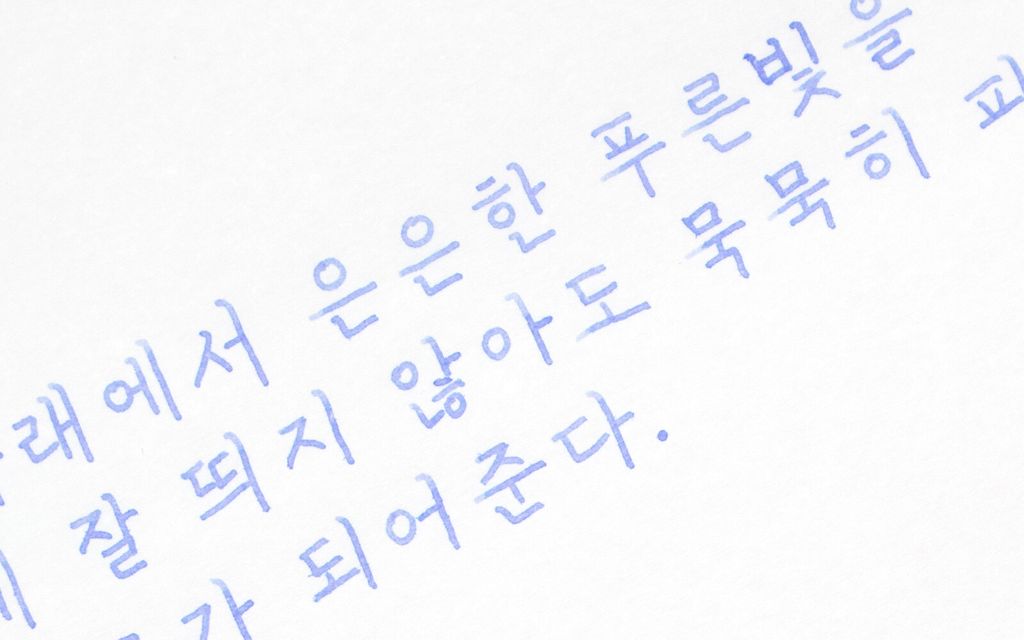 래에서 은은한 푸른빛을
잘 띄지 않아도 묵묵히
가 되어준다.